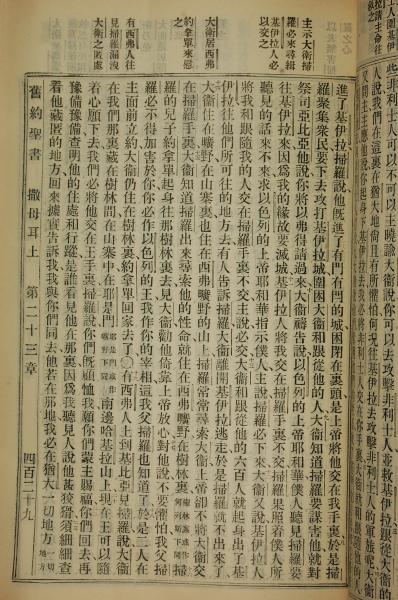 些非利士人可以不可以主曉諭大衛說你可以去攻擊非利士人並救基伊拉跟從大衛的
人說我們在這裏在猶大地尚且有所懼怕何況往基伊拉去攻擊非利士人的軍旅呢大衛
進了基伊拉掃羅說他既進了有門有閂的城困閉在裏頭是上帝將他交在我手裏於是掃
羅聚集衆民要下去攻打基伊拉城圍困大衛和跟從他的人大衛知道掃羅要謀害他就對
祭司亞比亞他說你將以弗得請過來大衛禱告說以色列的上帝耶和華僕人聽見掃羅要
往基伊拉來因爲我的緣故要滅城基伊拉人將我交在掃羅手裏不交掃羅果照着僕人所
聽見的話來不來求以色列的上帝耶和華指示僕人主說掃羅必下來大衛又說基伊拉人
將我和跟隨我的人交在掃羅手裏不交主說必交大衛和跟從他的六百人就起身出了基
伊拉往他們所可往的地方去有人告訴掃羅大衛離開基伊拉逃走於是掃羅就不出來了
大衛住在曠野在山寨裏也住在西弗曠野的山上掃羅常常尋索大衛上帝卻不將大衛交
在掃羅手裏大衛知道掃羅出來尋索他的性命就住在西弗曠野在樹林裏
的兒子約拿單起身往那樹林裏去見大衛勸他倚靠上帝放心對他說不要懼怕我父掃
羅必不得加害於你你必作以色列的王我作你的宰相這事我父掃羅也知道了於是二人在
主面前立約大衛仍住在樹林裏約拿單回家去了〇有西弗人上到基比亞見掃羅說大衛
在我們那裏藏在樹林間在山寨中在耶是門南邊哈基拉山上現在王可以隨
着心願下去我們必將他交在王手裏掃羅說你們既顧恤我願你們蒙主賜福你們回去再
豫備豫備查明他的住處和行蹤是誰看見他在那裏因爲我聽見人說他甚狡猾須細細查
看他藏匿的地方回來據實告訴我我與你們同去他若在那地我必在猶大一切地方
舊約聖書 撒母耳上 第二十三章 四百二十九
主示大衛掃
羅必來尋緝
基伊拉人必
以交之
大衛居西弗
約拿單來慰
之
有西弗人往
見掃羅漏洩
大衛之匿處